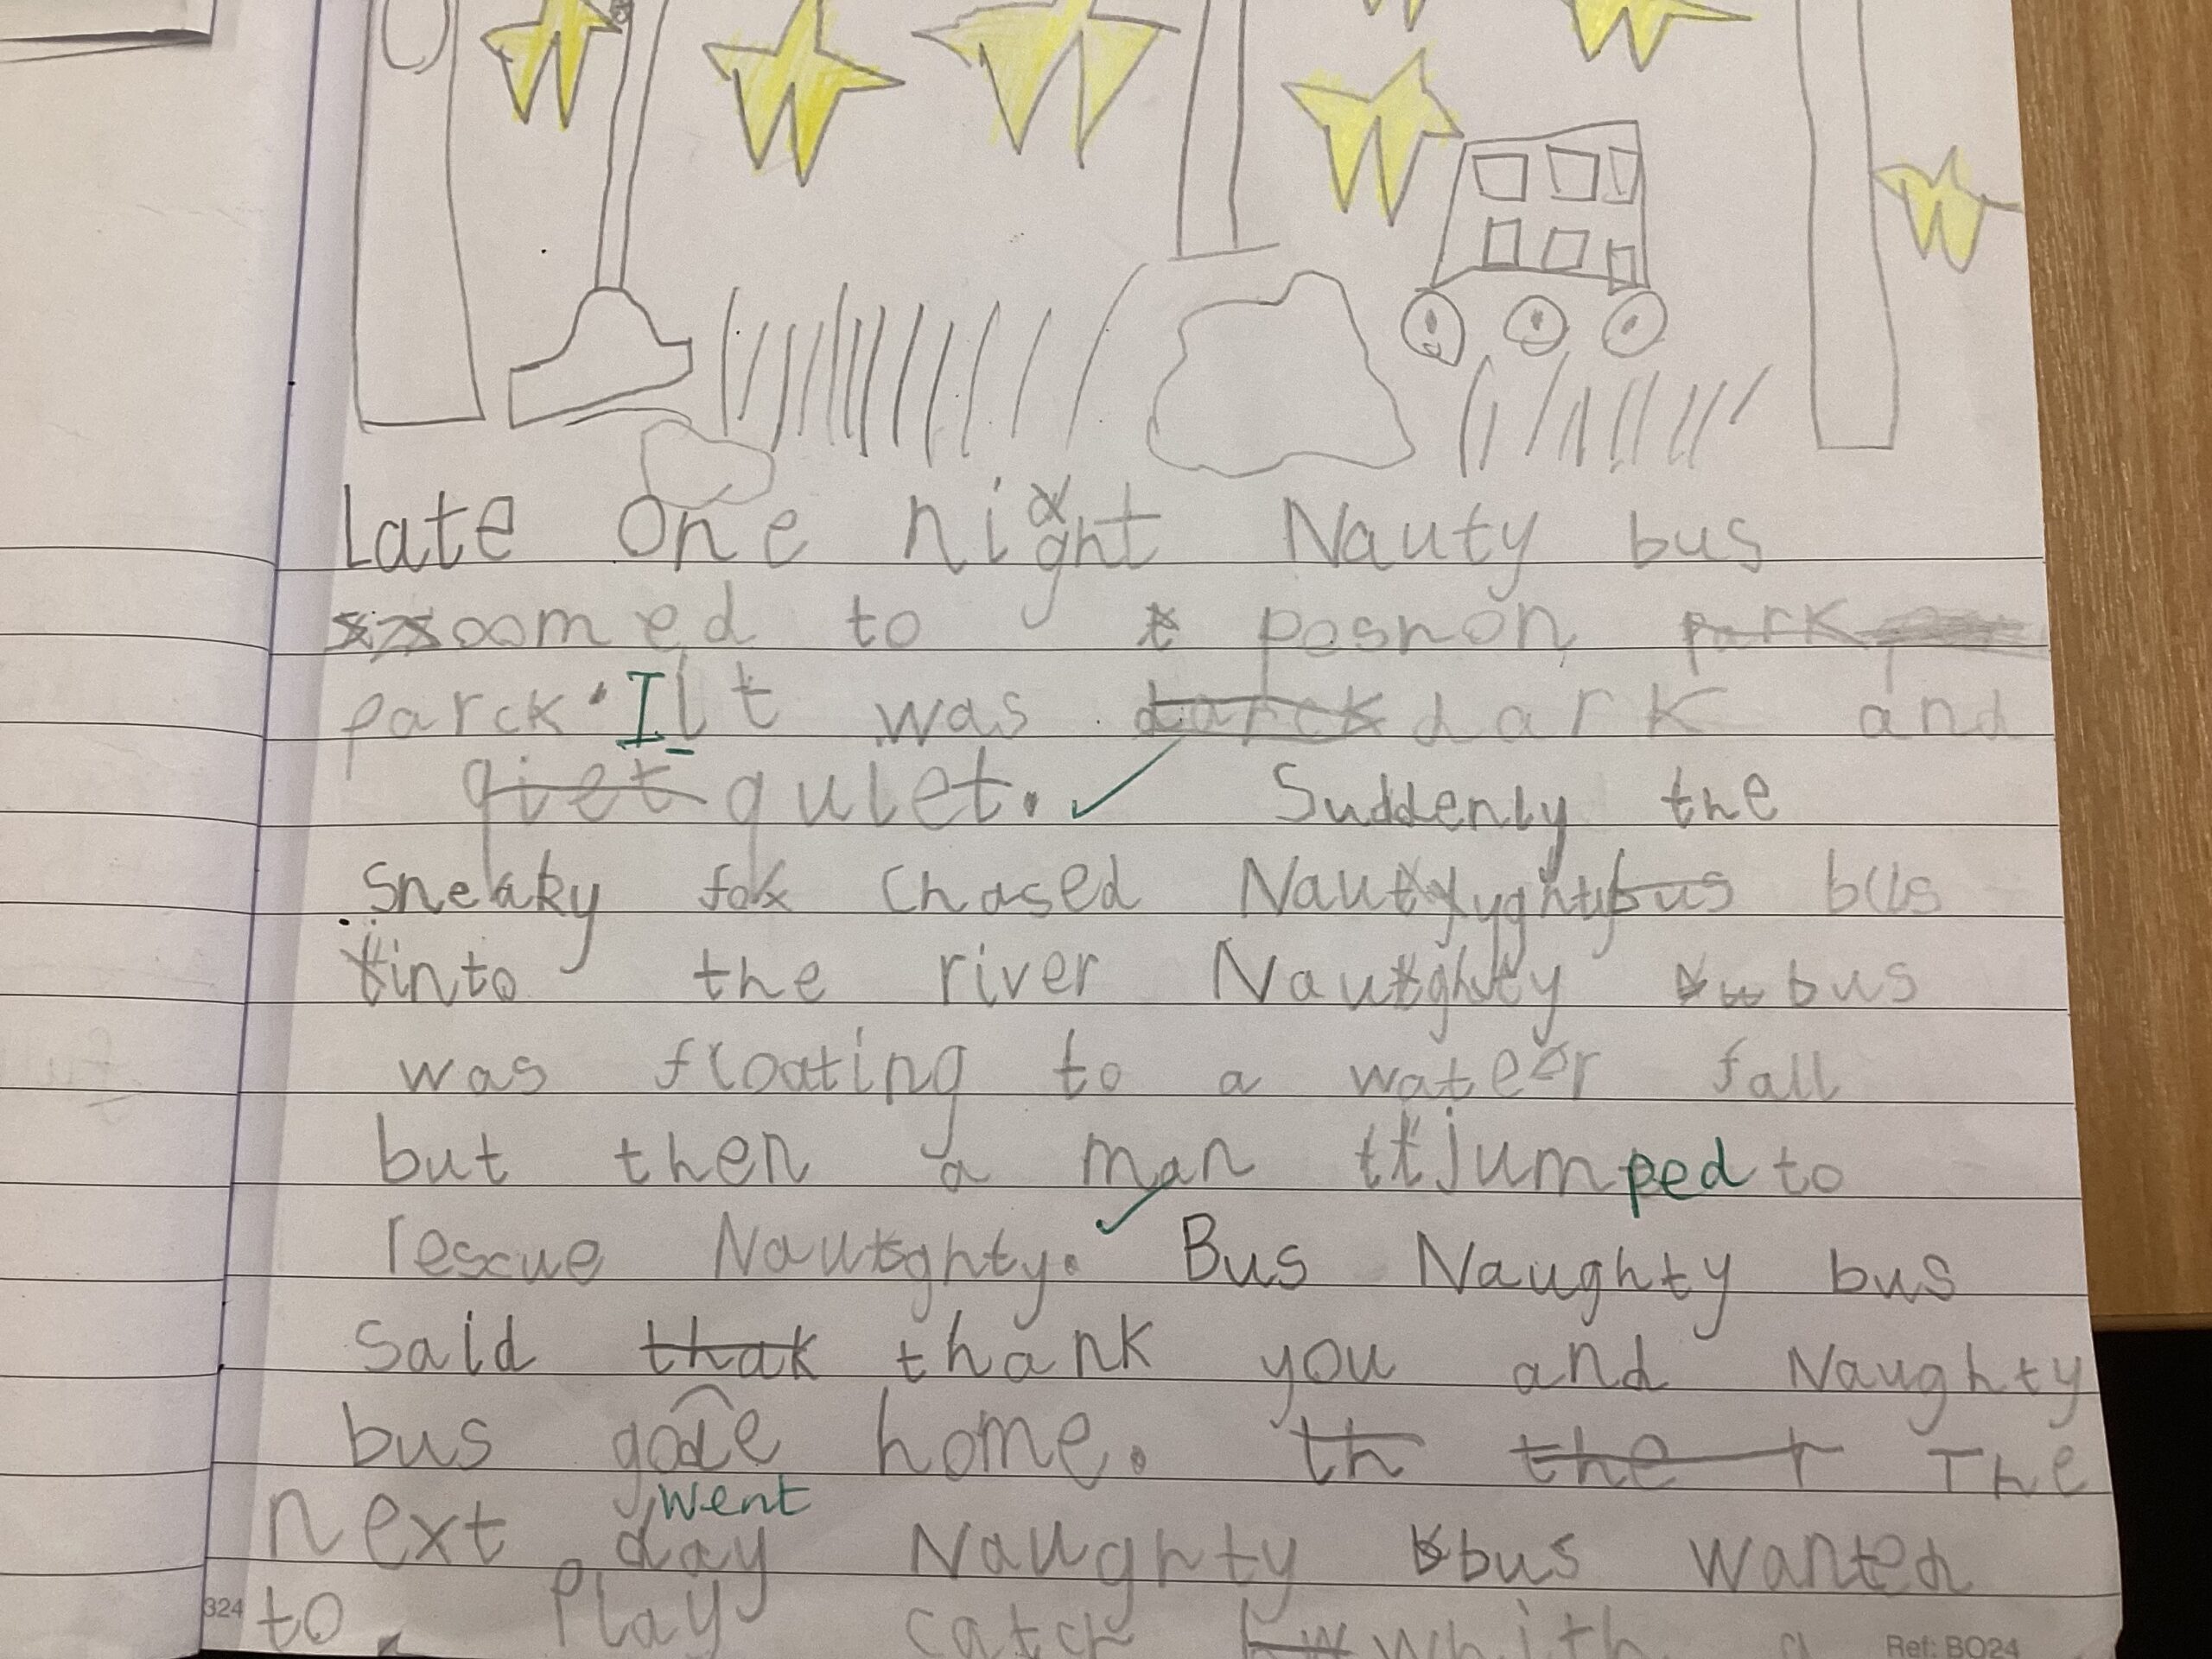 Late one night Nauty bus
zoomed to posnon park
parck. It was darck dark and
qiet quiet. Suddenly the
Sneaky fox chased Naughty bus bus
into the river Naughty bus
was floating to a water fall
but then a man jumped to
rescue Naughty. Bus Naughty bus
said thak thank you and Naughty
bus home. th the r The
went
next day Naughty bus wanted
to play catch whith a
324
Ref: BO24